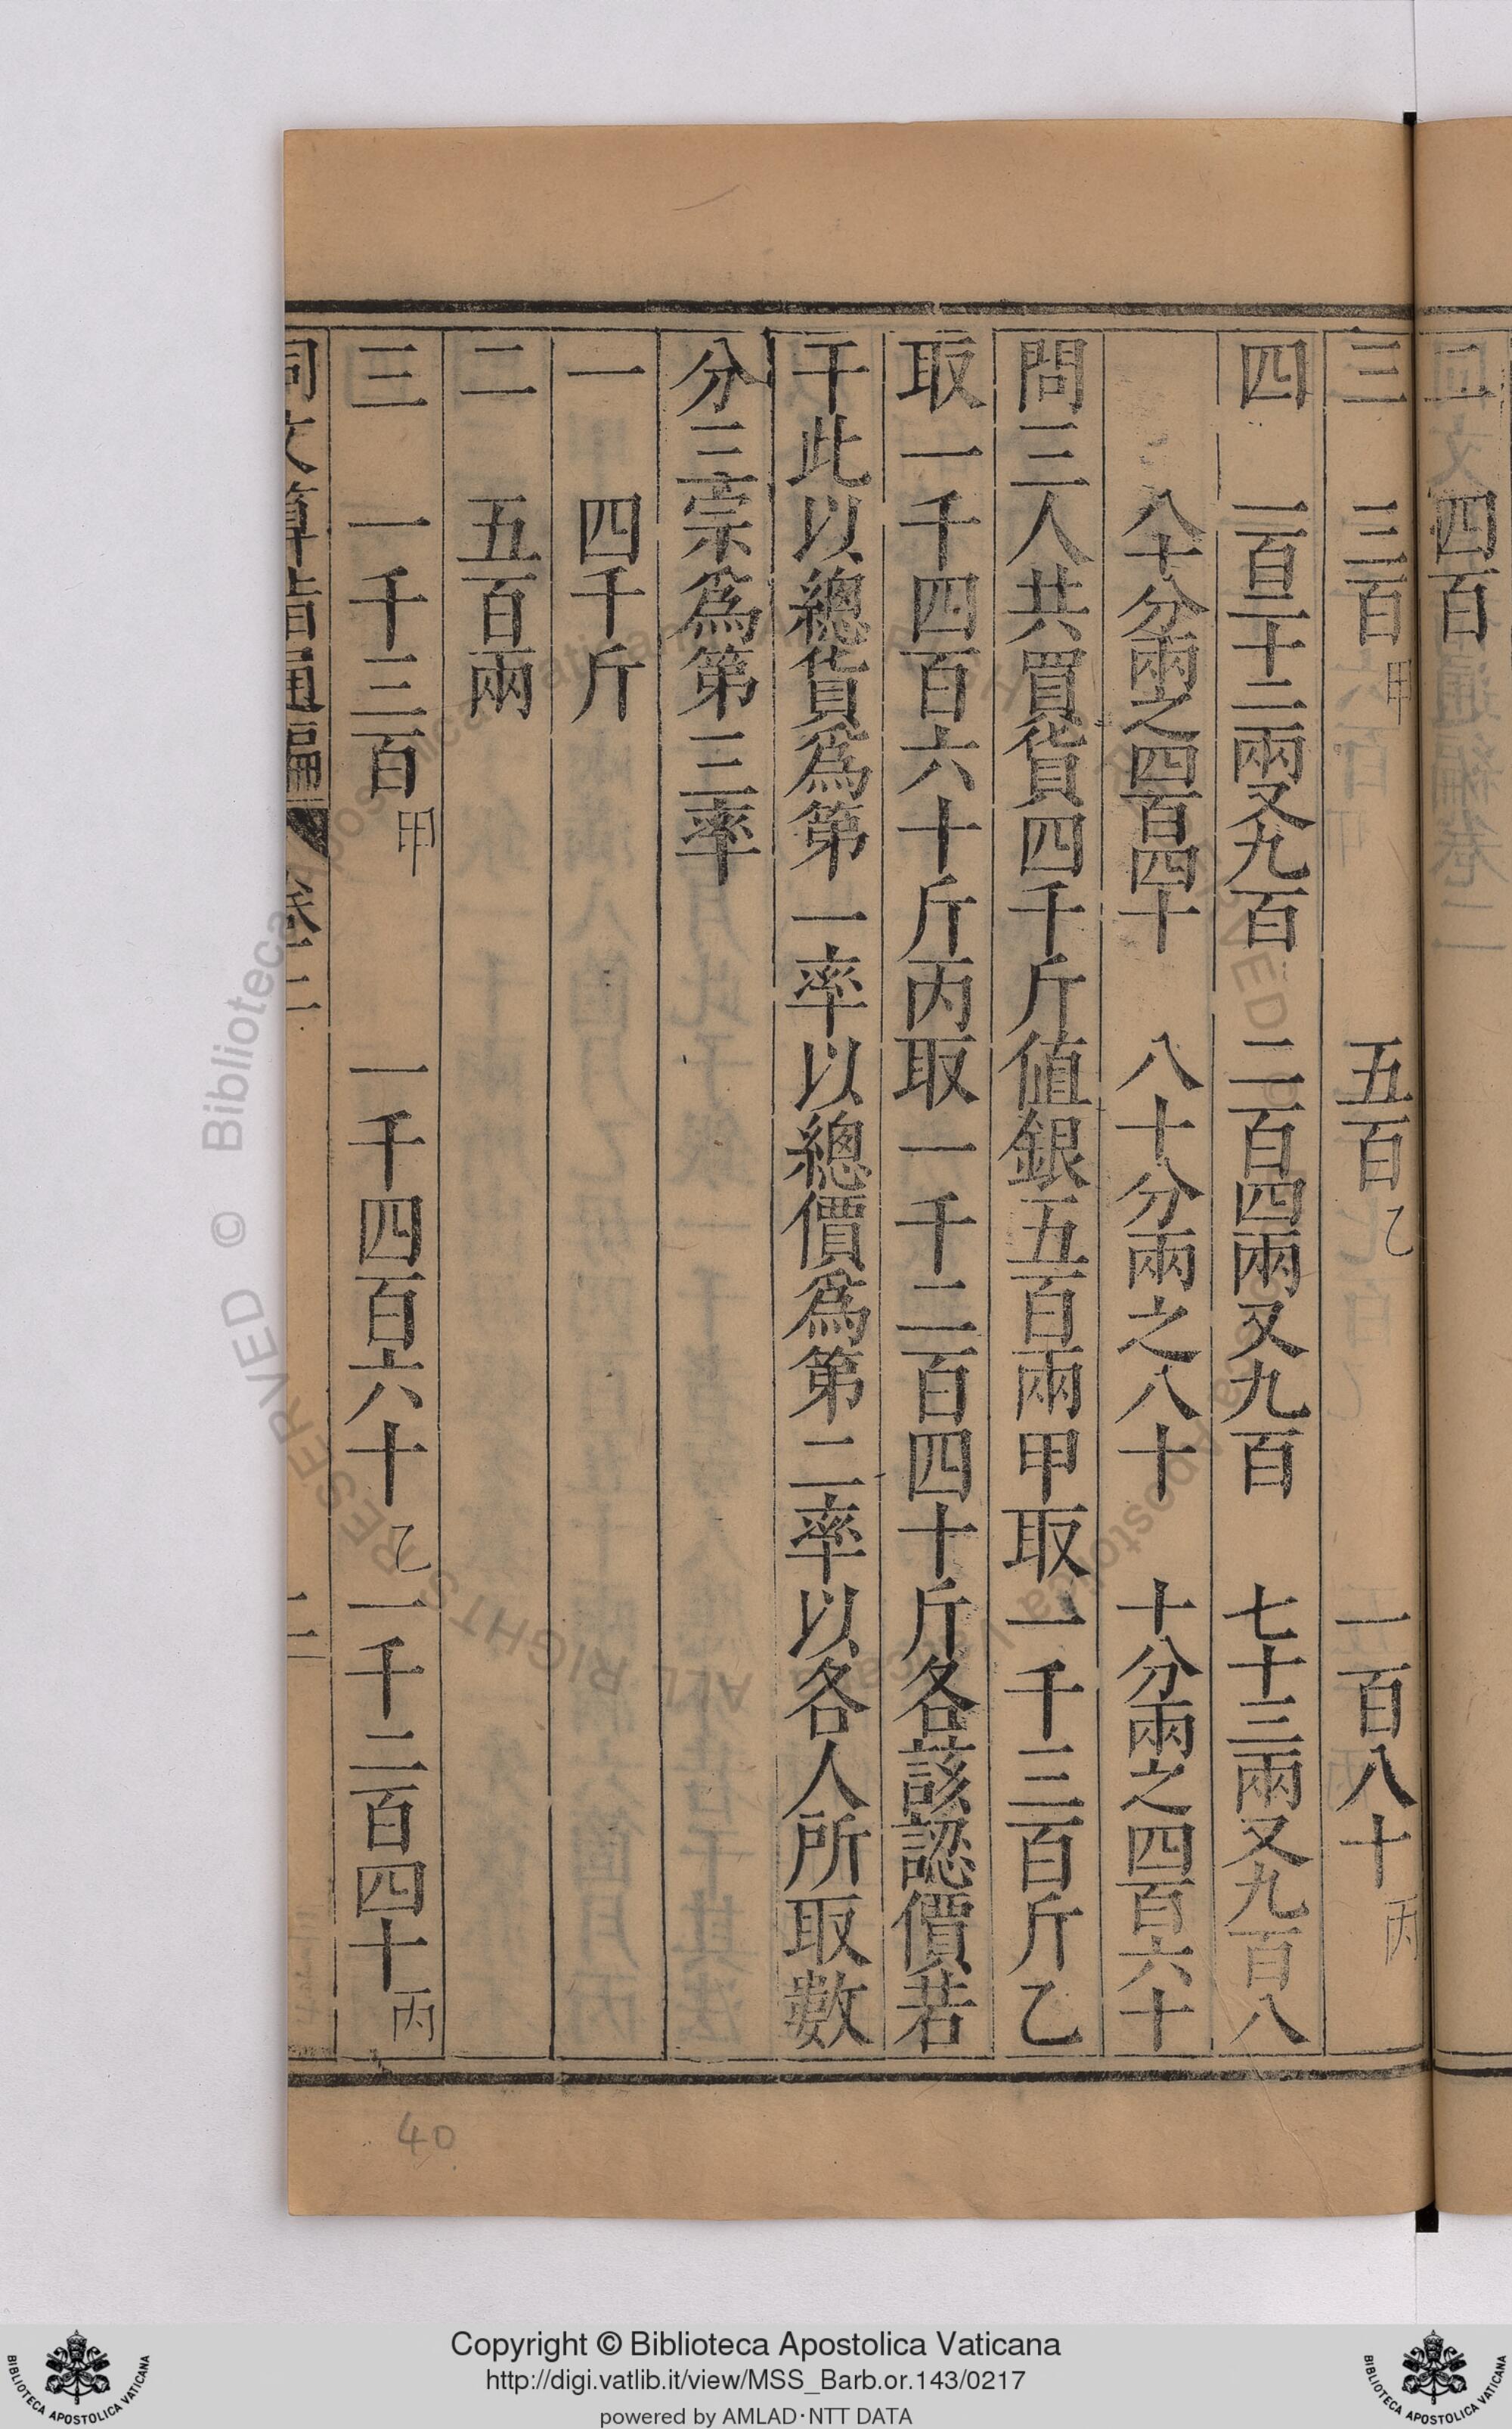 二　四百
三　三百甲　五百乙　一百八十丙
四　一百二十二兩又九百　二百四兩又九百　七十三兩又九百八
八十分兩之四百四十　八十分兩之八十　十分兩之四百六十
問三人共買貨四千斤值銀五百兩甲取一千三百斤乙
取一千四百六十斤丙取一千二百四十斤各該認價若
干此以總貨爲第一率以總價爲第二率以各人所取數
分三宗爲第三率
一　四千斤
二　五百兩
三　一千三百甲　一千四百六十乙　一千二百四十丙
同文算指通編　卷二　二
40
© Biblioteca Apostolica Vaticana
ALL RIGHTS RESERVED
Copyright © Biblioteca Apostolica Vaticana
http://digi.vatlib.it/view/MSS_Barb.or.143/0217
powered by AMLAD·NTT DATA
BIBLIOTECA APOSTOLICA VATICANA
BIBLIOTECA APOSTOLICA VATICANA